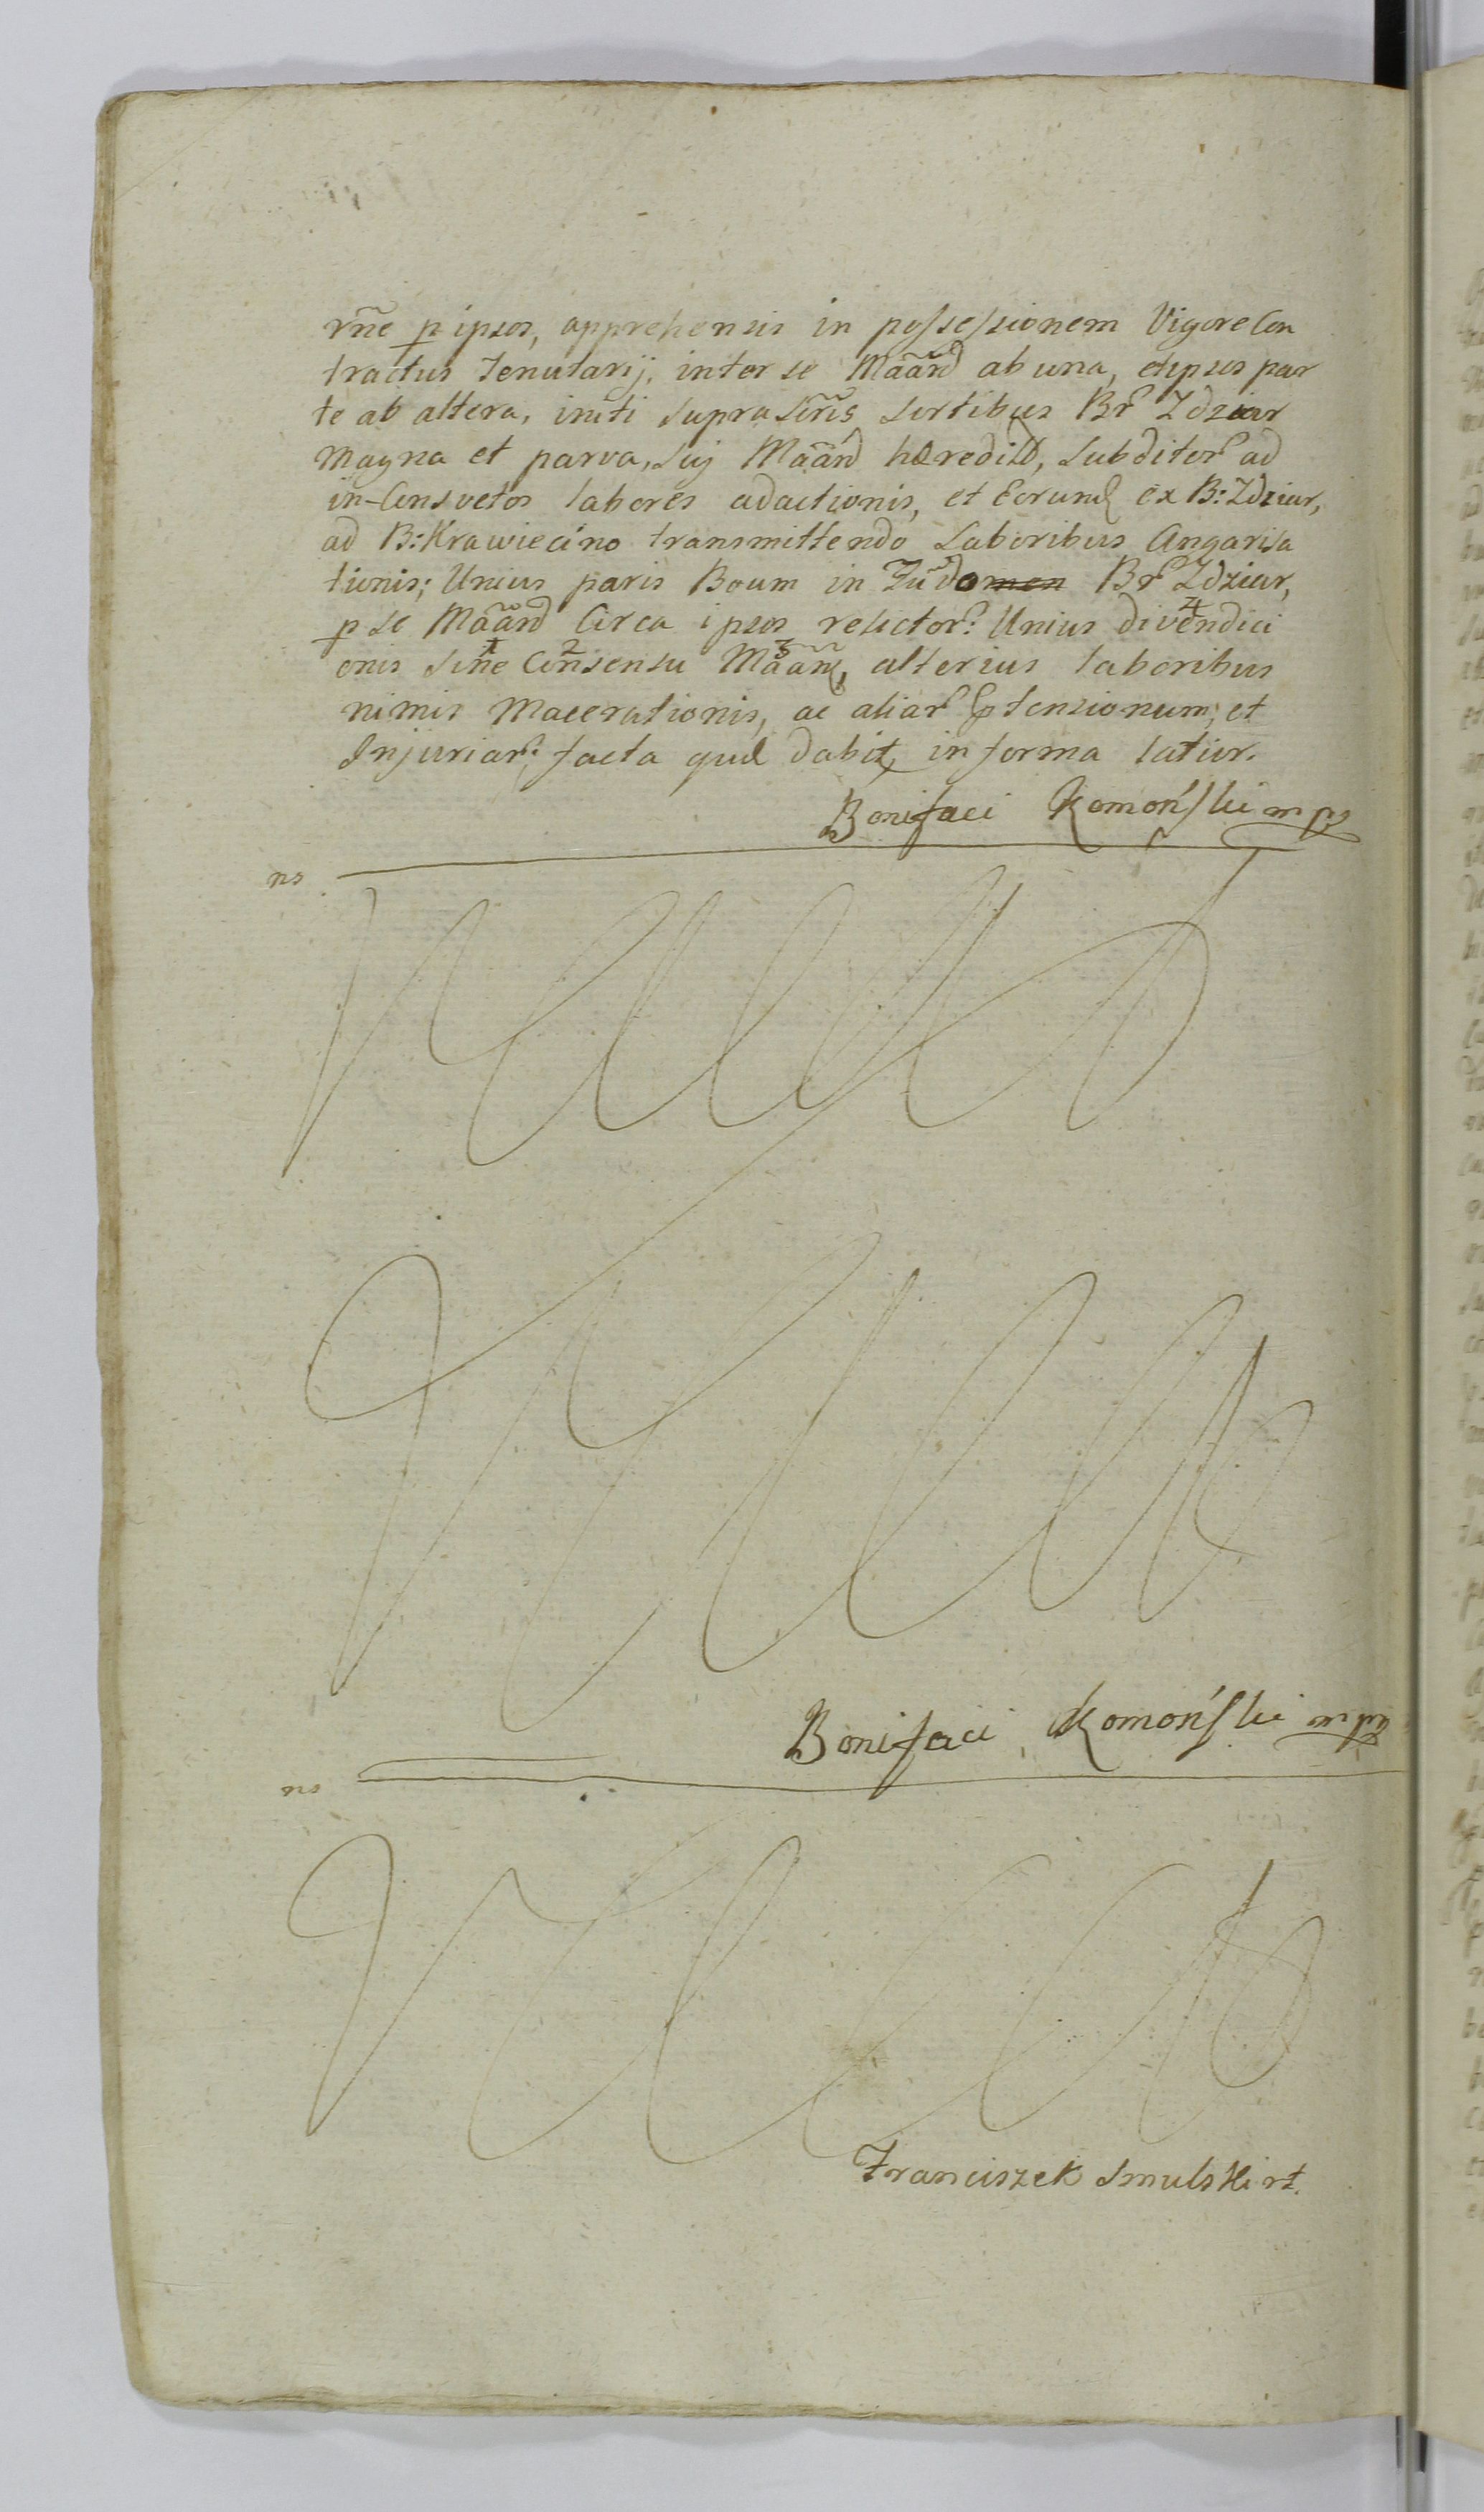 rñe p ipsos, apprehensis in possessionem Vigore Con
tractus Tenutarij, inter se Mããnd ab una, et ipsos par
te ab altera, initi supra scrĩs sortibus Br Zdziar
magna et parva, suj Mããnd hæredit, subditor ad
in-Consvetos labores adactionis, et Eorund ex B: Zdziar,
ad B: Krawiecino transmittendo Laboribus Angarisa
tionis; Unius paris Boum in Fũdo Br Zdziar,
p se Mããnd Circa ipsos relictor: Unius divendici
onis sine Consensu Mããnd, alterius laboribus
nimis Macerationis, ac aliar ptensionum, et
Injuriar: facta qud dabit in forma latior.
Bonifaci Komoński mp
ns
Bonifaci Komoński mp
ns
Franciszek Smulski rt.